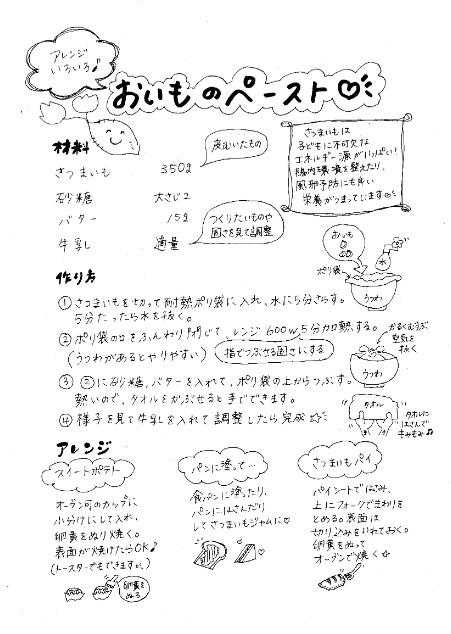 アレンジ
いろいろ♪
おいものペースト♡
材料
皮むいたもの
さつまいも 350g
砂糖 大さじ2
バター 15g
牛乳 適量
つくりたいものや
固さを見て調整
さつまいもは
子どもに不可欠な
エネルギー源がいっぱい!
腸内環境を整えたり、
風邪予防にも良い
栄養がつまっています
おいも
水
ポリ袋
うつわ
作り方
①さつまいもを切って耐熱ポリ袋に入れ、水に5分さらす。
5分たったら水を抜く。
②ポリ袋の口をふんわり閉じて、レンジ600w5分加熱する。
(うつわがあるとやりやすい) 指でつぶせる固さにする
かるくむすぶ
空気を
抜く
うつわ
③②に砂糖,バターを入れて、ポリ袋の上からつぶす。
熱いので、タオルをかぶせると手でできます。
タオル
タオルに
はさんで
もみもみ♪
④様子を見て牛乳を入れて調整したら完成☆
アレンジ
スイートポテト
オーブン可のカップに
小分けにして入れ、
卵黄をぬり焼く。
表面が焼けたらOK♪
(トースターでもできます。)
卵黄を
ぬる
パンに塗って…
食パンに塗ったり、
パンにはさんだり
してさつまいもジャムに♡
さつまいもパイ
パイシートではさみ、
上にフォークでまわりを
とめる。表面は
切り込みをいれておく。
卵黄をぬって
オーブンで焼く☆